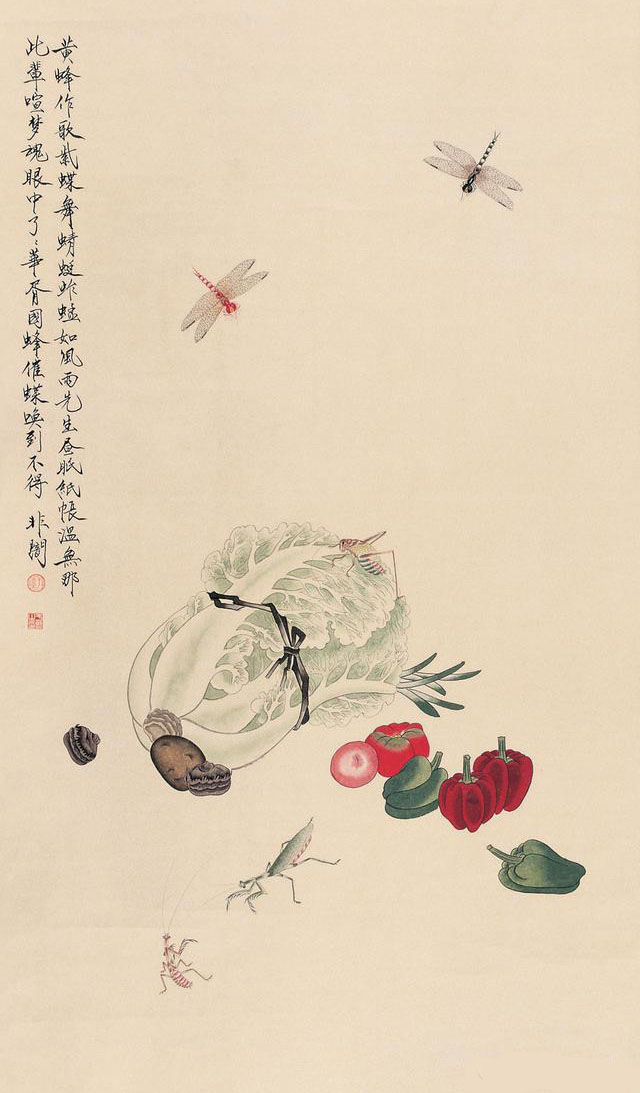 黄蜂作歌紫蝶舞蜻蜓蚱蜢如風雨先生昼眠紙帳溫無那
此輩喧夢魂眼中了〻華胥國蜂催蝶喚到不得 非闇